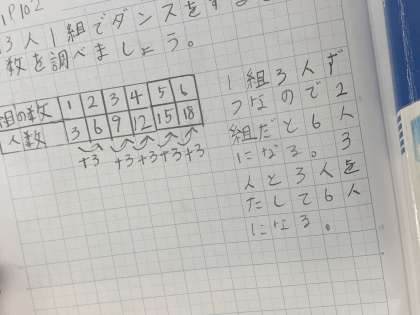 P102
3人1組でダンスをする
数を調べましょう。
組の数 1 2 3 4 5 6
人数 3 6 9 12 15 18
+3 +3 +3 +3 +3
1組3人ず
つなので2
組だと6人
になる。3
人と3人を
たして6人
になる。